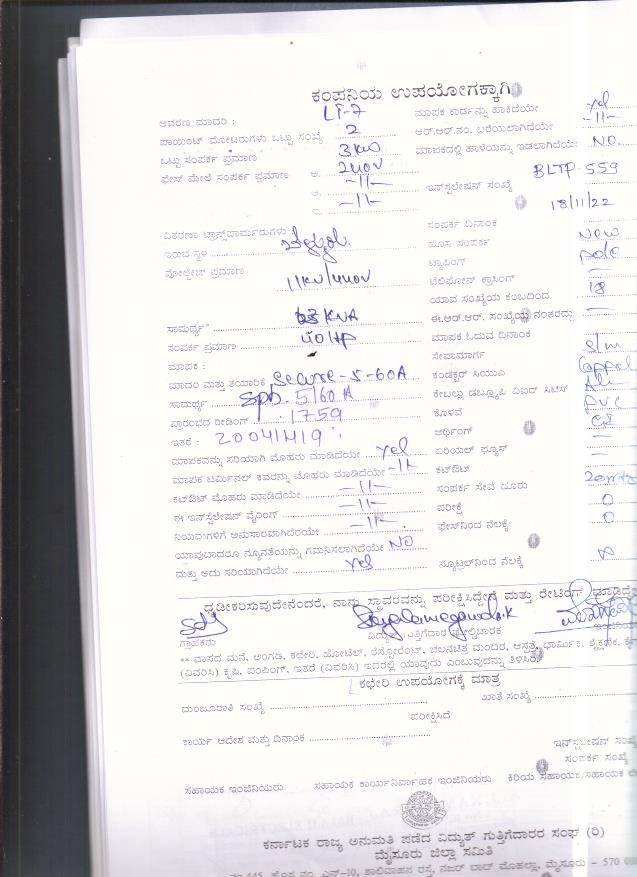 ಕಂಪನಿಯ ಉಪಯೋಗಕ್ಕಾಗಿ
ಆವರಣ ಮಾದರಿ : LT-7 ಮಾಪಕ ಕಾರ್ಡನ್ನು ಹಾಕಿದೆಯೇ yes
ಪಾಯಿಂಟ್ ಮೋಟರುಗಳು ಒಟ್ಟು ಸಂಖ್ಯೆ 2 ಆರ್.ಆರ್.ನಂ. ಬರೆಯಲಾಗಿದೆಯೇ -11-
ಒಟ್ಟು ಸಂಪರ್ಕ ಪ್ರಮಾಣ 3KW ಮಾಪಕದಲ್ಲಿ ಹಾಳೆಯನ್ನು ಇಡಲಾಗಿದೆಯೇ: NO.
ಫೇಸ್ ಮೇಲೆ ಸಂಪರ್ಕ ಪ್ರಮಾಣ ಅ. 240V
ಆ. -11- ಇನ್‌ಸ್ಟಲೇಷನ್ ಸಂಖ್ಯೆ BLTP-559
ಇ. -11- 18/11/22
ವಿತರಣಾ ಟ್ರಾನ್ಸ್‌ಫಾರ್ಮರುಗಳು ಸಂಪರ್ಕ ದಿನಾಂಕ
ಇರುವ ಸ್ಥಳ ಹೊಸ ಸಂಪರ್ಕ New
ವೋಲ್ಟೇಜ್ ಪ್ರಮಾಣ 11KV/440V ಟ್ಯಾಪಿಂಗ್ pole
ಟೆಲಿಫೋನ್ ಕ್ರಾಸಿಂಗ್ —
ಯಾವ ಸಂಖ್ಯೆಯ ಕಂಬದಿಂದ 18
ಸಾಮರ್ಥ್ಯ* KVA ಈ.ಆರ್.ಆರ್. ಸಂಖ್ಯೆಯ ನಂತರದ್ದು —
ಸಂಪರ್ಕ ಪ್ರಮಾಣ 40HP ಮಾಪಕ ಓದುವ ದಿನಾಂಕ
ಮಾಪಕ : ಸೇವಾಮಾರ್ಗ S/m
ಮಾದರಿ ಮತ್ತು ತಯಾರಿಕೆ Secure-5-60A ಕಂಡಕ್ಟರ್ ಸಿಯುಎ
ಸಾಮರ್ಥ್ಯ 5/60A ಕೇಬಲ್ಲು ಡಬ್ಲ್ಯೂಪಿ ವಿಐರ್ ಸಿಟಿಸ್
ಪ್ರಾರಂಭದ ರೀಡಿಂಗ್ 1759 ಕೊಳವೆ PVC
ಇತರೆ : 20041419 ಅರ್ಥಿಂಗ್
ಮಾಪಕವನ್ನು ಸರಿಯಾಗಿ ಮೊಹರು ಮಾಡಿದೆಯೇ yes ಏರಿಯಲ್ ಫ್ಯೂಸ್ —
ಮಾಪಕ ಟರ್ಮಿನಲ್ ಕವರನ್ನು ಮೊಹರು ಮಾಡಿದೆಯೇ -11- ಕಟ್‌ಔಟ್ —
ಕಟ್‌ಔಟ್ ಮೊಹರು ಮಾಡಿದೆಯೇ -11- ಸಂಪರ್ಕ ಸೇವೆ ದೂರು
ಈ ಇನ್‌ಸ್ಟಲೇಷನ್ ವೈರಿಂಗ್ -11- ಪರೀಕ್ಷೆ 0
ನಿಯಮಗಳಿಗೆ ಅನುಸಾರವಾಗಿದೆಯೇ -11- ಫೇಸ್‌ನಿಂದ ನೆಲಕ್ಕೆ 0
ಯಾವುದಾದರೂ ನ್ಯೂನತೆಯನ್ನು ಗಮನಿಸಲಾಗಿದೆಯೇ NO
ಮತ್ತು ಅದು ಸರಿಯಾಗಿದೆಯೇ yes ನ್ಯೂಟ್ರಲ್‌ನಿಂದ ನೆಲಕ್ಕೆ
ದೃಢೀಕರಿಸುವುದೇನೆಂದರೆ, ನಾನು ಸ್ಥಾವರವನ್ನು ಪರೀಕ್ಷಿಸಿದ್ದೇನೆ ಮತ್ತು ರೇಟಿಂಗ್ ಮಾಡಿದ್ದೇ
ಗ್ರಾಹಕರು ವಿದ್ಯುತ್ ಗುತ್ತಿಗೆದಾರ ಮೇಲ್ವಿಚಾರಕ
** ವಾಸದ ಮನೆ, ಅಂಗಡಿ, ಕಛೇರಿ, ಹೋಟೆಲ್, ರೆಸ್ಟೋರೆಂಟ್, ಚಲನಚಿತ್ರ ಮಂದಿರ, ಆಸ್ಪತ್ರೆ, ಧಾರ್ಮಿಕ, ಶೈಕ್ಷಣಿಕ,
(ವಿವರಿಸಿ) ಕೃಷಿ, ಪಂಪಿಂಗ್, ಇತರೆ (ವಿವರಿಸಿ) ಇದರಲ್ಲಿ ಯಾವುದು ಎಂಬುವುದನ್ನು ತಿಳಿಸಿರಿ
ಕಛೇರಿ ಉಪಯೋಗಕ್ಕೆ ಮಾತ್ರ
ಮಂಜೂರಾತಿ ಸಂಖ್ಯೆ ಖಾತೆ ಸಂಖ್ಯೆ
ಪರೀಕ್ಷಿಸಿದೆ
ಕಾರ್ಯ ಆದೇಶ ಮತ್ತು ದಿನಾಂಕ ಇನ್‌ಸ್ಟಲೇಷನ್ ಸಂಖ್ಯೆ
ಸಂಪರ್ಕ ಸಂಖ್ಯೆ
ಸಹಾಯಕ ಇಂಜಿನಿಯರು ಸಹಾಯಕ ಕಾರ್ಯನಿರ್ವಾಹಕ ಇಂಜಿನಿಯರು ಕಿರಿಯ ಸಹಾಯಕ/ಸಹಾಯಕ
ಕರ್ನಾಟಕ ರಾಜ್ಯ ಅನುಮತಿ ಪಡೆದ ವಿದ್ಯುತ್ ಗುತ್ತಿಗೆದಾರರ ಸಂಘ (ರಿ)
ಮೈಸೂರು ಜಿಲ್ಲಾ ಸಮಿತಿ
ನಂ.445, ಹೊಸ ನಂ. ಎನ್-10, ಶಾಲಿವಾಹನ ರಸ್ತೆ, ನಜರ್ ಬಾದ್ ಮೊಹಲ್ಲಾ, ಮೈಸೂರು - 570